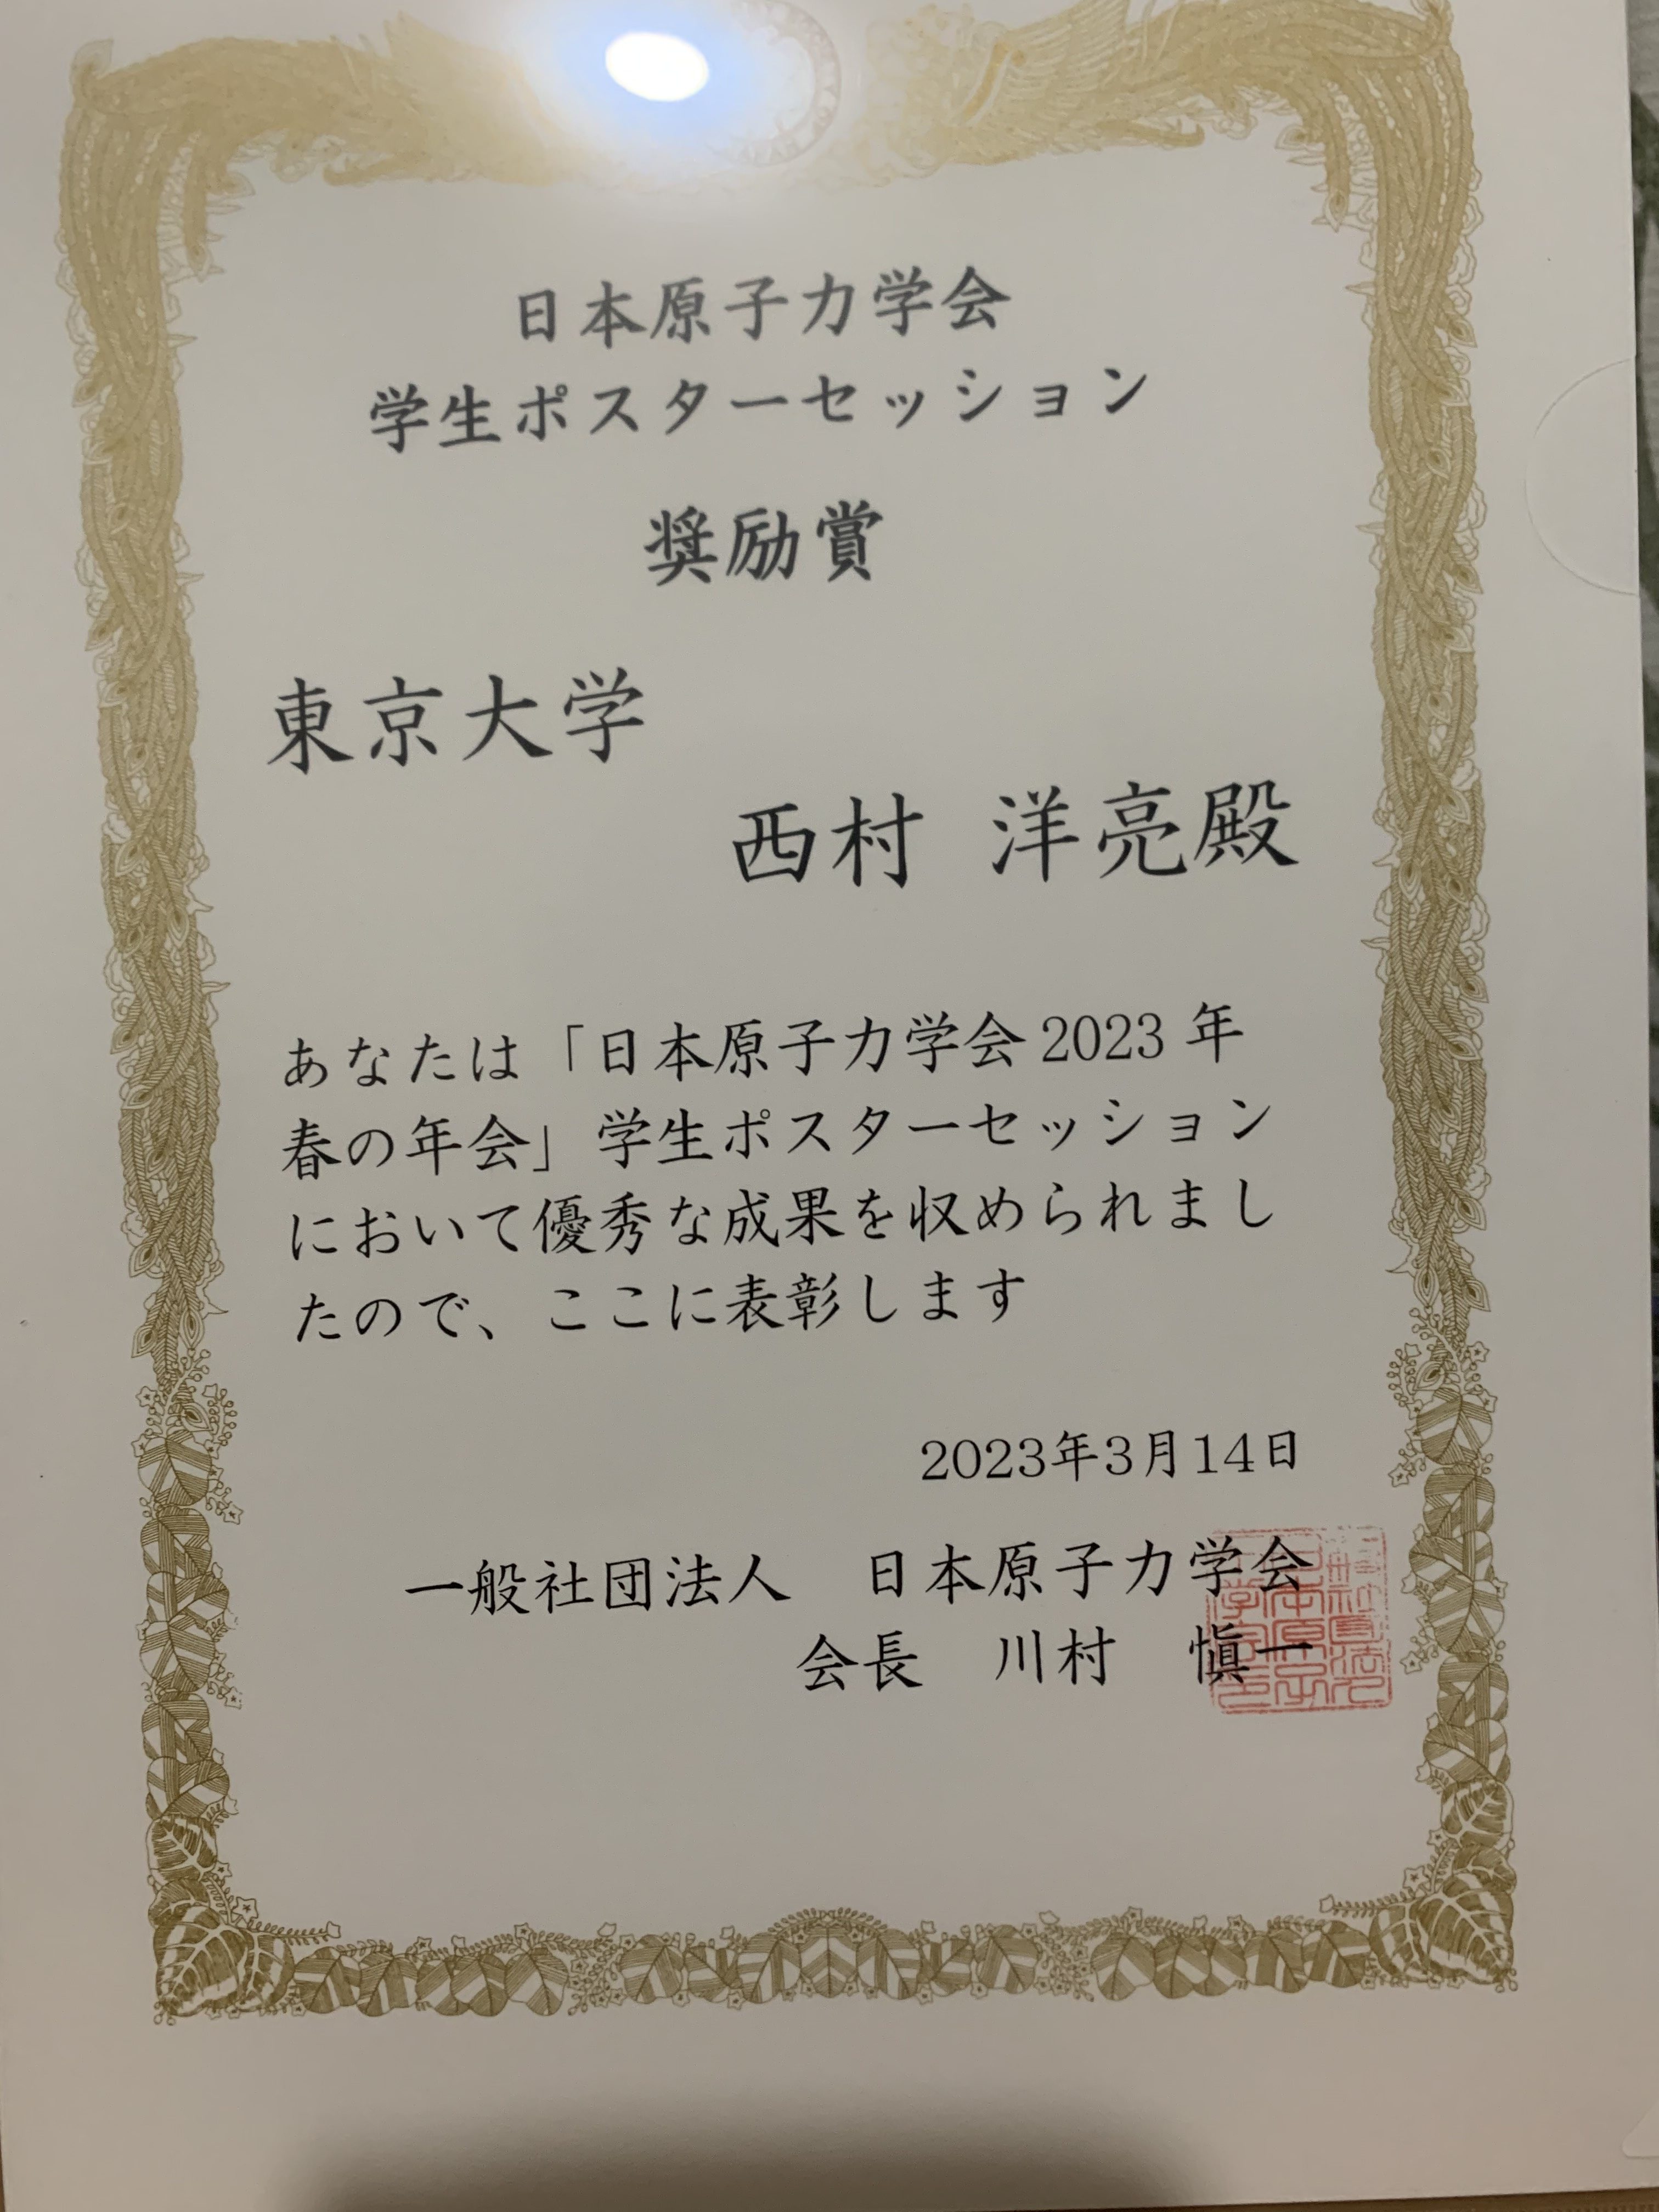 日本原子力学会
学生ポスターセッション
奨励賞
東京大学
西村 洋亮殿
あなたは「日本原子力学会2023年
春の年会」学生ポスターセッション
において優秀な成果を収められまし
たので、ここに表彰します
2023年3月14日
一般社団法人 日本原子力学会
会長 川村 愼一